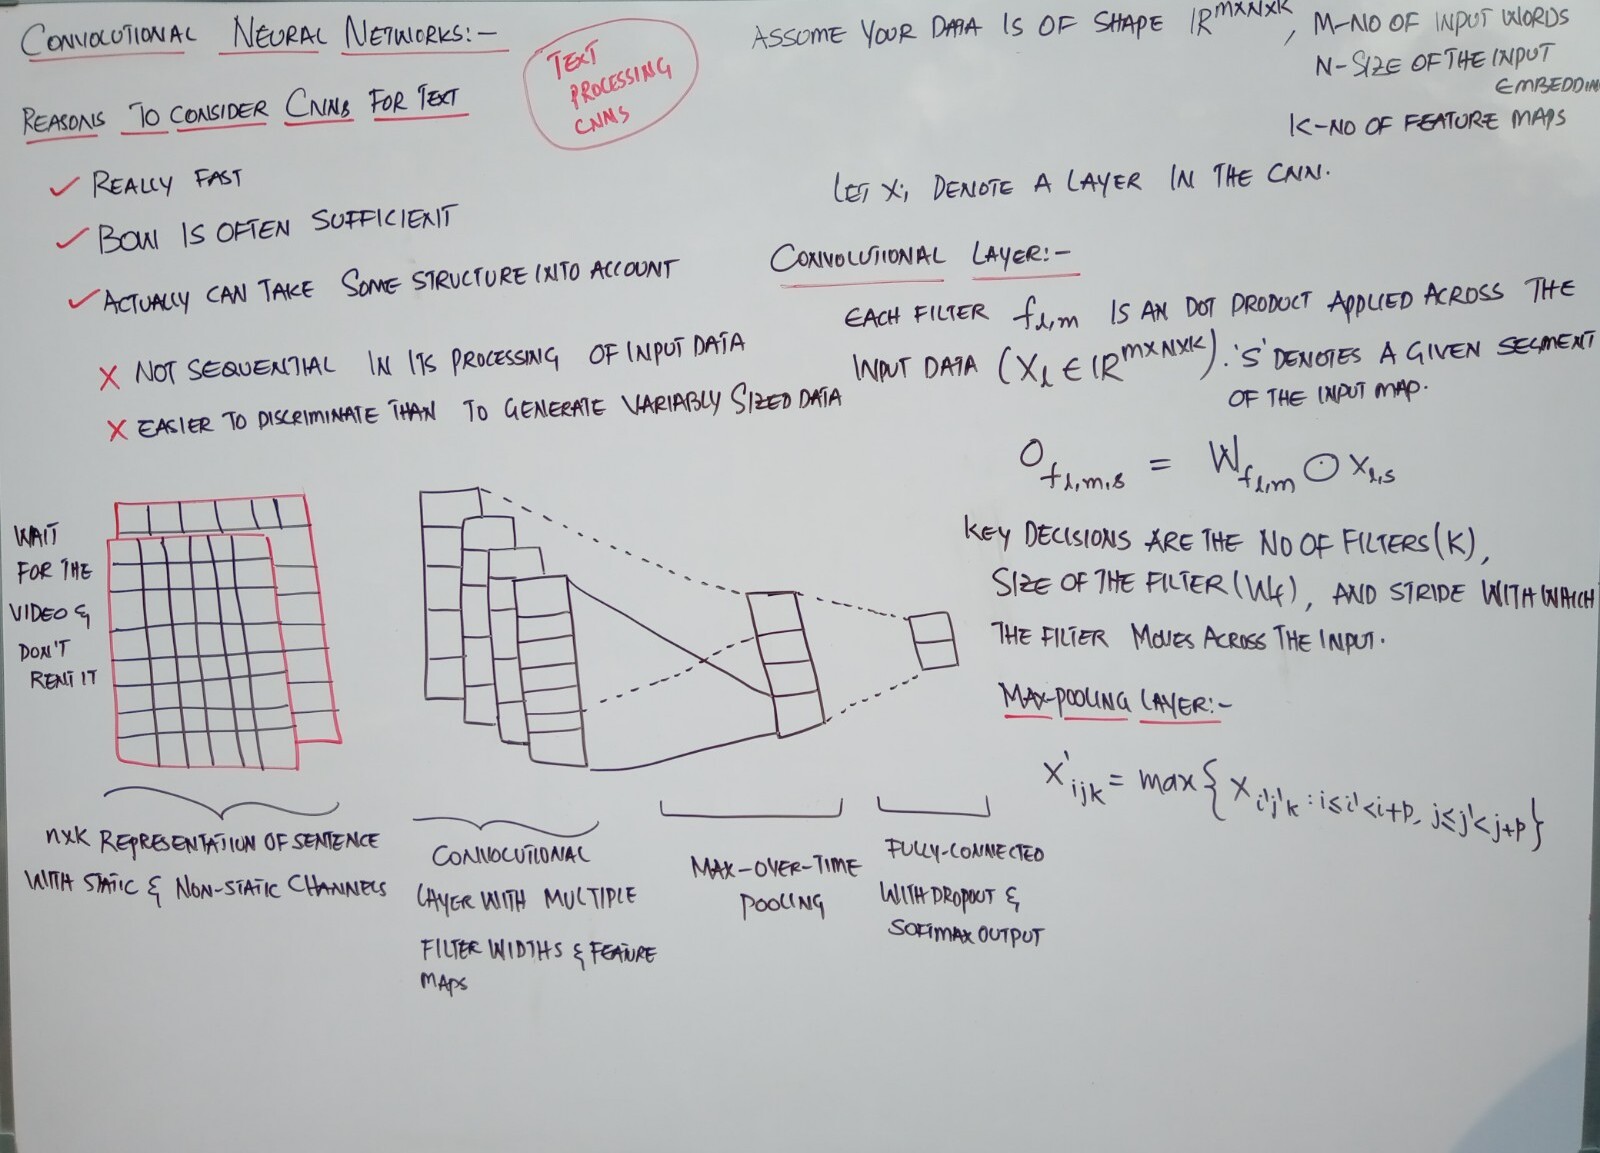 CONVOLUTIONAL NEURAL NETWORKS:-
TEXT
PROCESSING
CNNS
REASONS TO CONSIDER CNNS FOR TEXT
✓ REALLY FAST
✓ BOW IS OFTEN SUFFICIENT
✓ ACTUALLY CAN TAKE SOME STRUCTURE INTO ACCOUNT
X NOT SEQUENTIAL IN ITS PROCESSING OF INPUT DATA
X EASIER TO DISCRIMINATE THAN TO GENERATE VARIABLY SIZED DATA
WAIT
FOR THE
VIDEO &
DON'T
RENT IT
nxk REPRESENTATION OF SENTENCE
WITH STATIC & NON-STATIC CHANNELS
CONVOLUTIONAL
LAYER WITH MULTIPLE
FILTER WIDTHS & FEATURE
MAPS
MAX-OVER-TIME
POOLING
FULLY-CONNECTED
WITH DROPOUT &
SOFTMAX OUTPUT
ASSUME YOUR DATA IS OF SHAPE IR^MXNXK, M-NO OF INPUT WORDS
N-SIZE OF THE INPUT
EMBEDDIN
K-NO OF FEATURE MAPS
LET Xi, DENOTE A LAYER IN THE CNN.
CONVOLUTIONAL LAYER:-
EACH FILTER f_l,m IS AN DOT PRODUCT APPLIED ACROSS THE
INPUT DATA (X_l ∈ IR^MXNXK). 'S' DENOTES A GIVEN SEGMENT
OF THE INPUT MAP.
O_f_l,m,s = W_f_l,m ⊙ X_l,s
KEY DECISIONS ARE THE NO OF FILTERS(K),
SIZE OF THE FILTER (Wf), AND STRIDE WITH WHICH
THE FILTER MOVES ACROSS THE INPUT.
MAX-POOLING LAYER:-
X'_ijk = max{X_i'j'k : i≤i'<i+p, j≤j'<j+p}